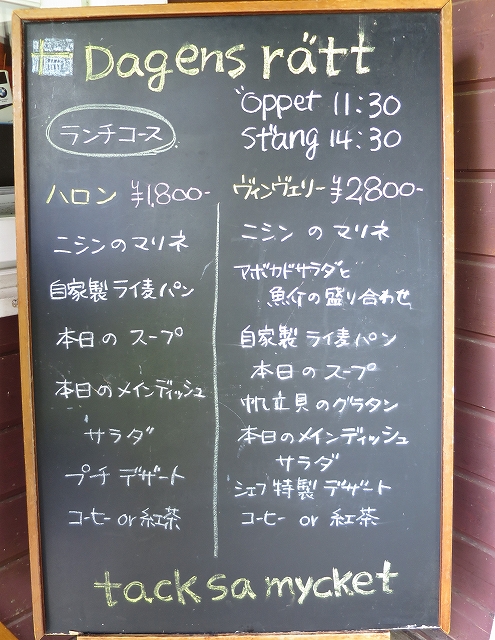 Dagens rätt
Öppet 11:30
Stäng 14:30
ランチコース
ハロン ¥1,800-
ニシンのマリネ
自家製ライ麦パン
本日のスープ
本日のメインディッシュ
サラダ
プチデザート
コーヒー or 紅茶
ヴィンヴェリー ¥2,800-
ニシンのマリネ
アボカドサラダと
魚介の盛り合わせ
自家製ライ麦パン
本日のスープ
帆立貝のグラタン
本日のメインディッシュ
サラダ
シェフ特製デザート
コーヒー or 紅茶
tack sa mycket